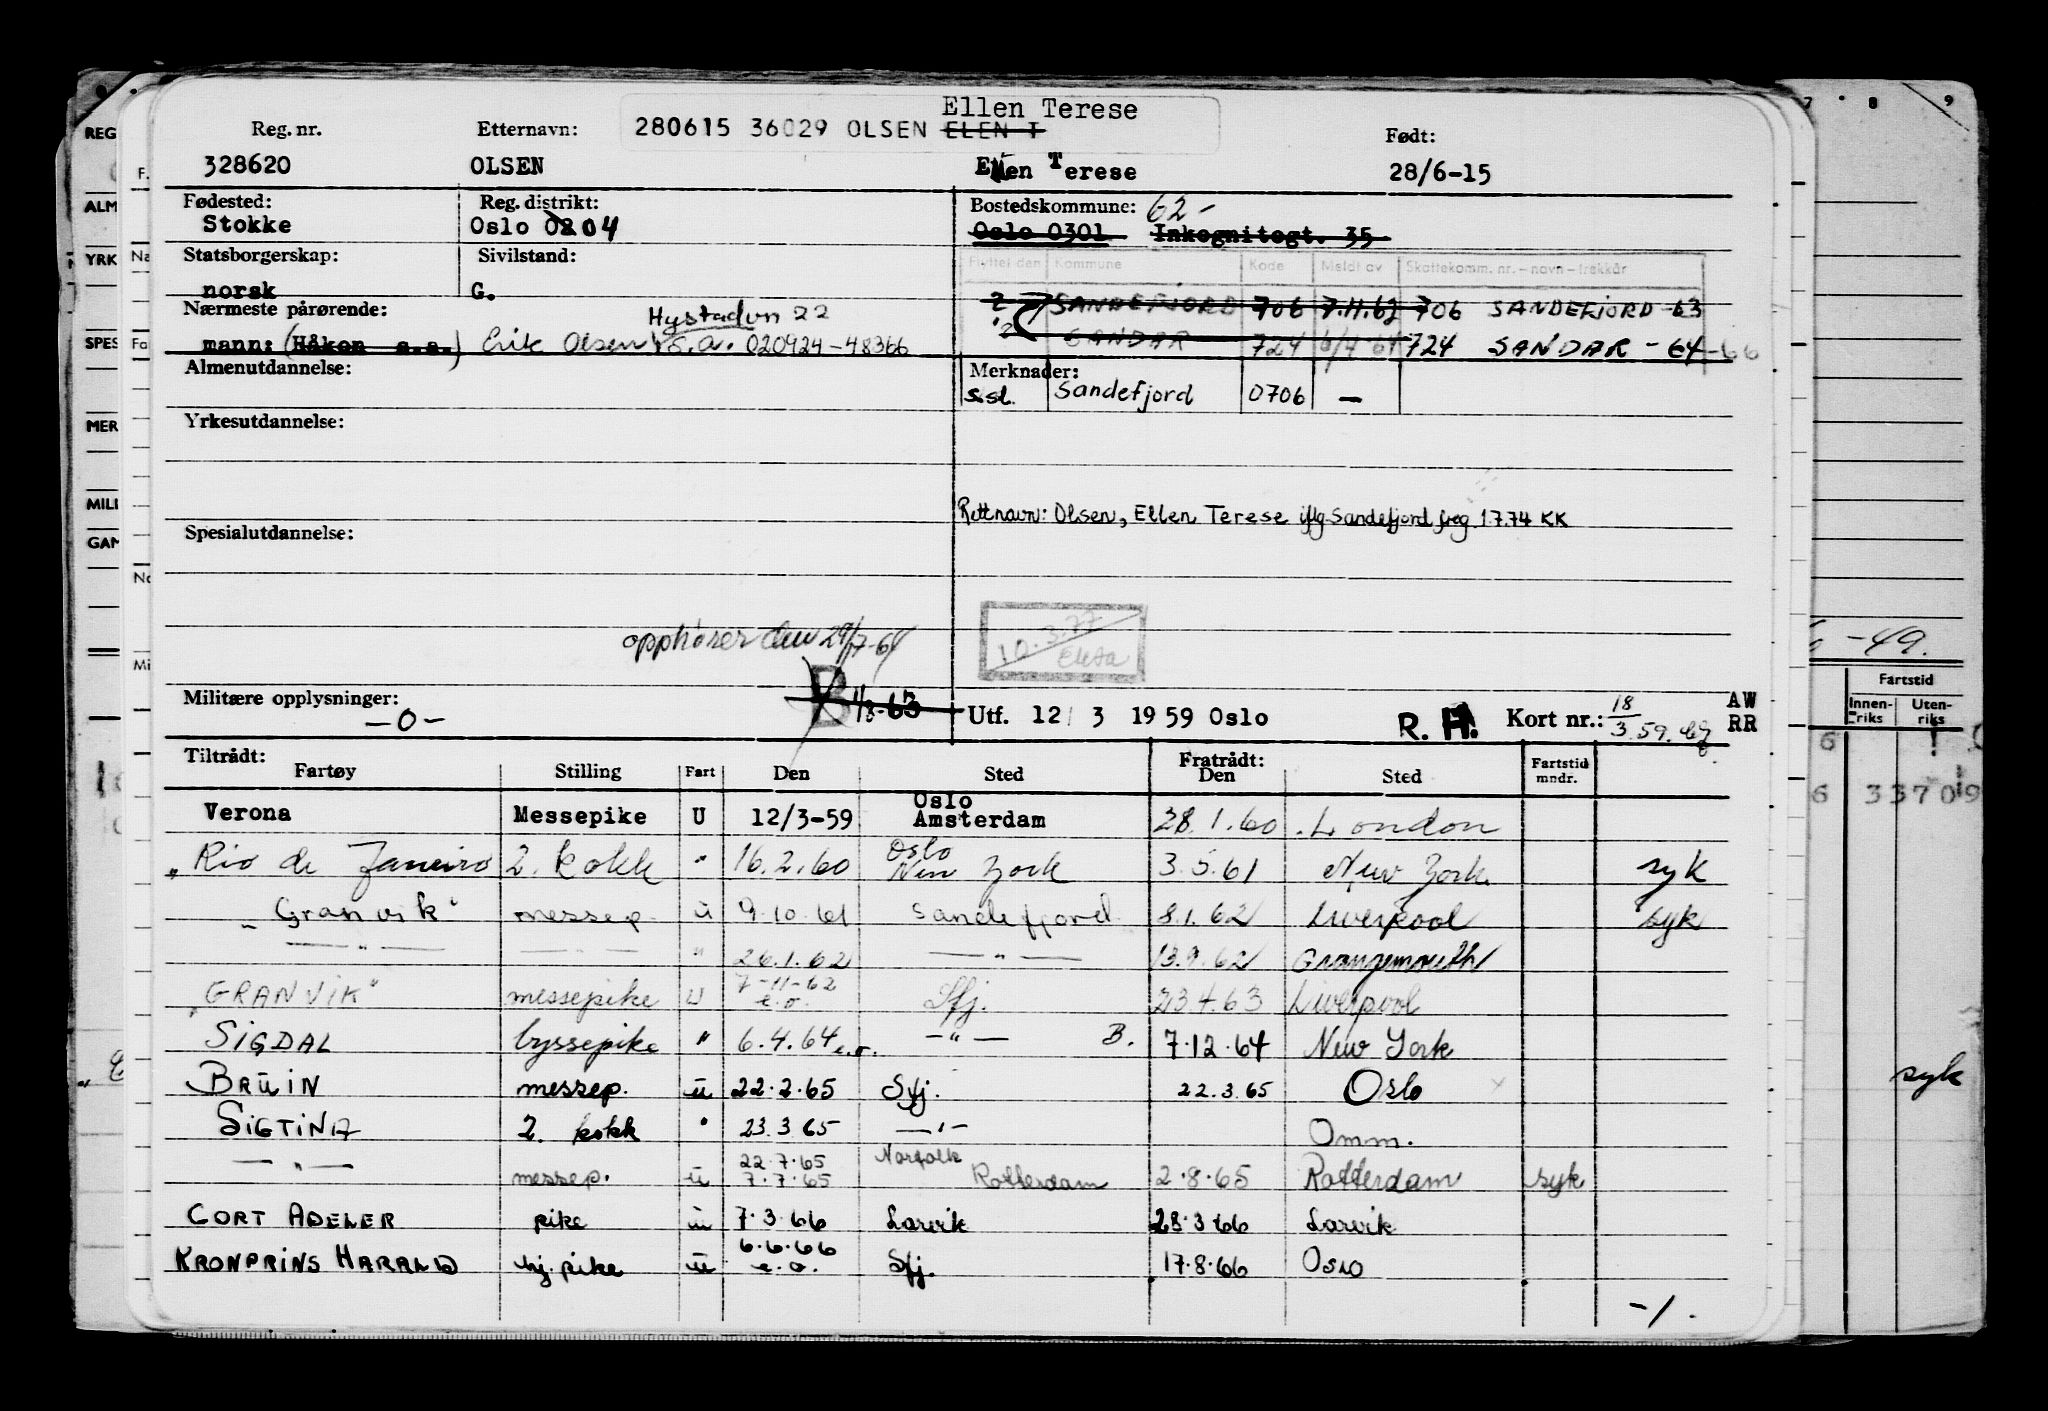 Ellen Terese
Reg. nr. Etternavn: 280615 36029 OLSEN ELEN T Født:
328620 OLSEN Ellen Terese 28/6-15
Fødested: Reg. distrikt: Bostedskommune: 62-
Stokke Oslo 0204 Oslo 0301 Inkognitogt. 35
Statsborgerskap: Sivilstand: Flyttet den Kommune Kode Meldt av Skattekomm. nr. - navn - trekkår
norsk G.
Nærmeste pårørende: Hystadvn 22 SANDEFJORD 706 7.11.62 706 SANDEFJORD-63
mann: (Håkon s.a.) Erik Olsen s.a. 020924-48366 SANDAR 724 6/4 64 724 SANDAR-64-66
Almenutdannelse: Merknader:
s.st. Sandefjord 0706 —
Yrkesutdannelse:
Rett navn: Olsen, Ellen Terese iflg Sandefjord freg 1.7.74 KK
Spesialutdannelse:
opphører den 29/7-64 10.3.77
Militære opplysninger: B 1/8-63 Utf. 12/3 1959 Oslo R. H. Kort nr.: 18/3.59. AW
-0- RR
Tiltrådt: Fratrådt:
Fartøy Stilling Fart Den Sted Den Sted Fartstid mndr.
Verona Messepike U 12/3-59 Oslo Amsterdam 28.1.60 London
"Rio de Janeiro 2. kokk " 16.2.60 Oslo New York 3.5.61 New York syk
"Granvik" messep. u 9.10.61 Sandefjord 8.1.62 Liverpool syk
— " — — " — " 26.1.62 — " — 13.9.62 Grangemouth
"GRANVIK" messepike U 7-11-62 e.o. Sfj. 23.4.63 Liverpool
SIGDAL byssepike " 6.4.64 e.o. — " — B. 7.12.64 New York
BRUIN messep. u 22.2.65 Sfj. 22.3.65 Oslo
SIGTINA 2. kokk " 23.3.65 — " — Omm.
— " — messep. u 22.7.65 7.7.65 Norfolk Rotterdam 2.8.65 Rotterdam syk
CORT ADELER pike u 7.3.66 Larvik 23.3.66 Larvik
KRONPRINS HARALD hj. pike u 6.6.66 e.o. Sfj. 17.8.66 Oslo
-1.
REG
ALM
YRK
SPES
MER
MILI
GAM
F.
Na
Fa
No
Mi
7 8 9
-49.
Fartstid
Innen-riks Uten-riks
6
6 33709
syk